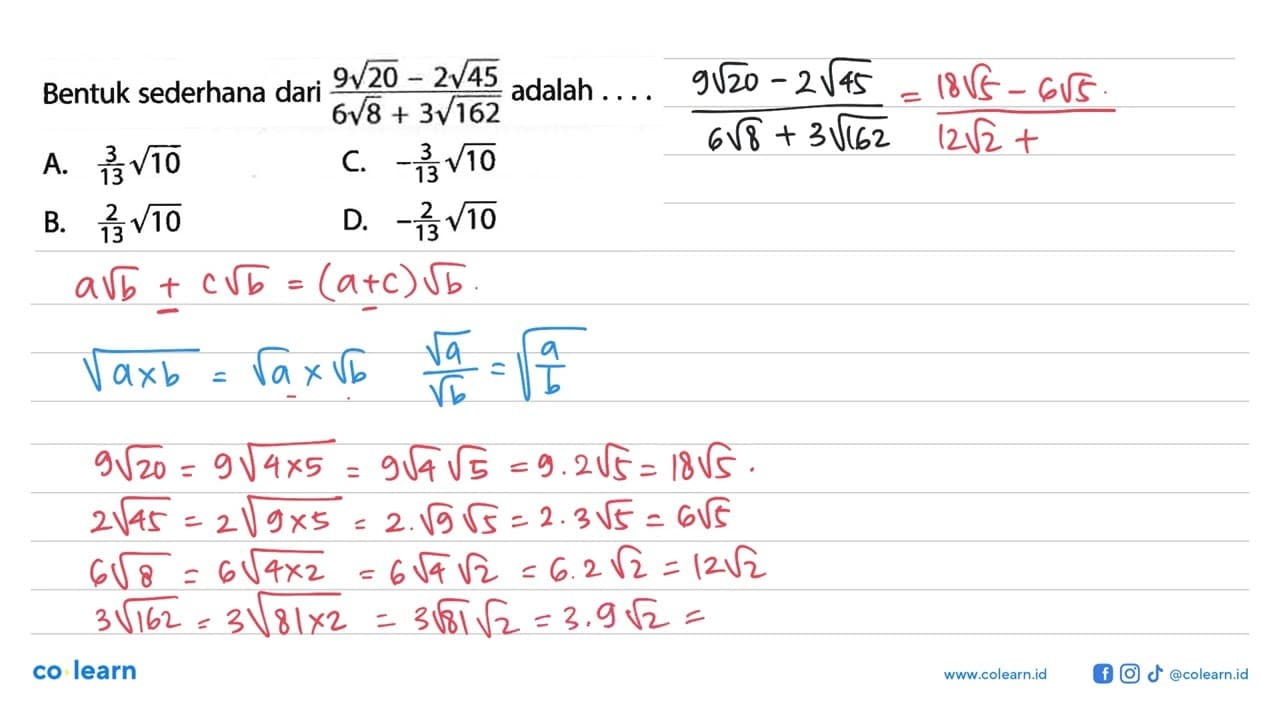 Bentuk sederhana dari (9√20 − 2√45)/(6√8 + 3√162) adalah . . . .
A. 3/13 √10
C. −3/13 √10
B. 2/13 √10
D. −2/13 √10
(9√20 − 2√45)/(6√8 + 3√162) = (18√5 − 6√5.)/(12√2 +
a√b + c√b = (a+c)√b.
√(a×b) = √a × √b √a/√b = √(a/b)
9√20 = 9√(4×5) = 9√4 √5 = 9.2√5 = 18√5.
2√45 = 2√(9×5) = 2.√9 √5 = 2.3√5 = 6√5
6√8 = 6√(4×2) = 6√4 √2 = 6.2√2 = 12√2
3√162 = 3√(81×2) = 3√81 √2 = 3.9√2 =
co learn
www.colearn.id
@colearn.id